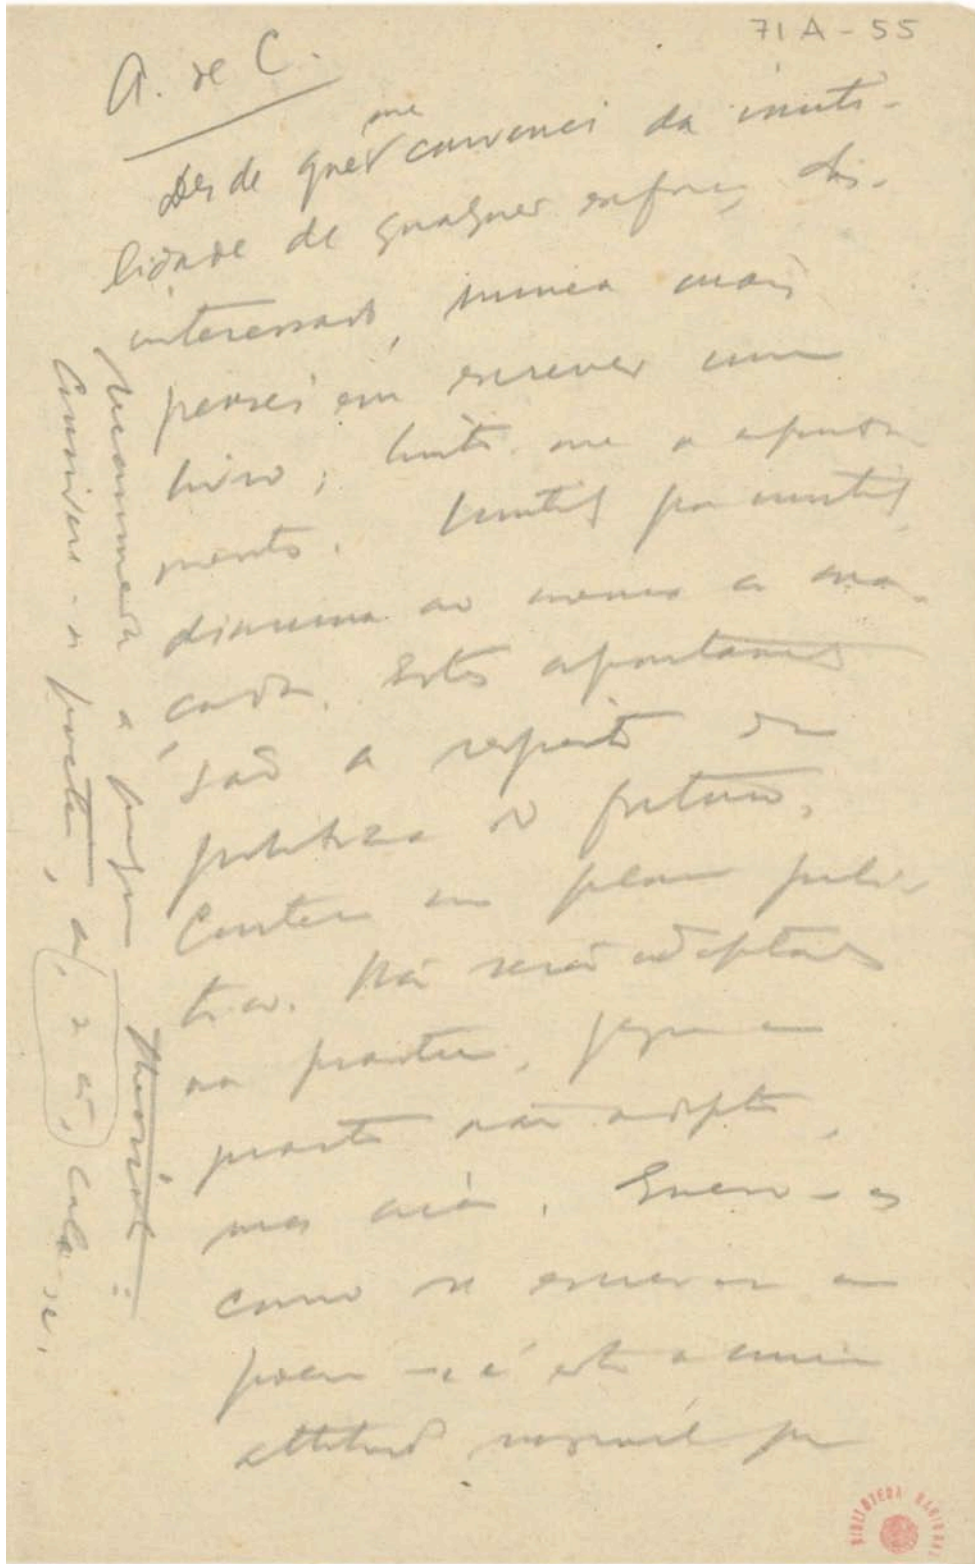 71A-55
A. de C.
Desde que me convenci da inuti-
lidade de qualquer esforço des-
interessado, nunca mais
pensei em escrever um
livro; limito-me a aponta-
mentos. Inutil por inutil,
diminua ao menos a ma-
çada. Estes apontamentos
são a respeito da
do futuro.
Contém um plano
Não será adoptado
na pratica, porque a
pratica não adopta,
mas cria. Escrevo-o
como se escrevera um
poema — e é esta a unica
attitude para
a
Convivem-se, ou, cala-se.
BIBLIOTECA NACIONAL